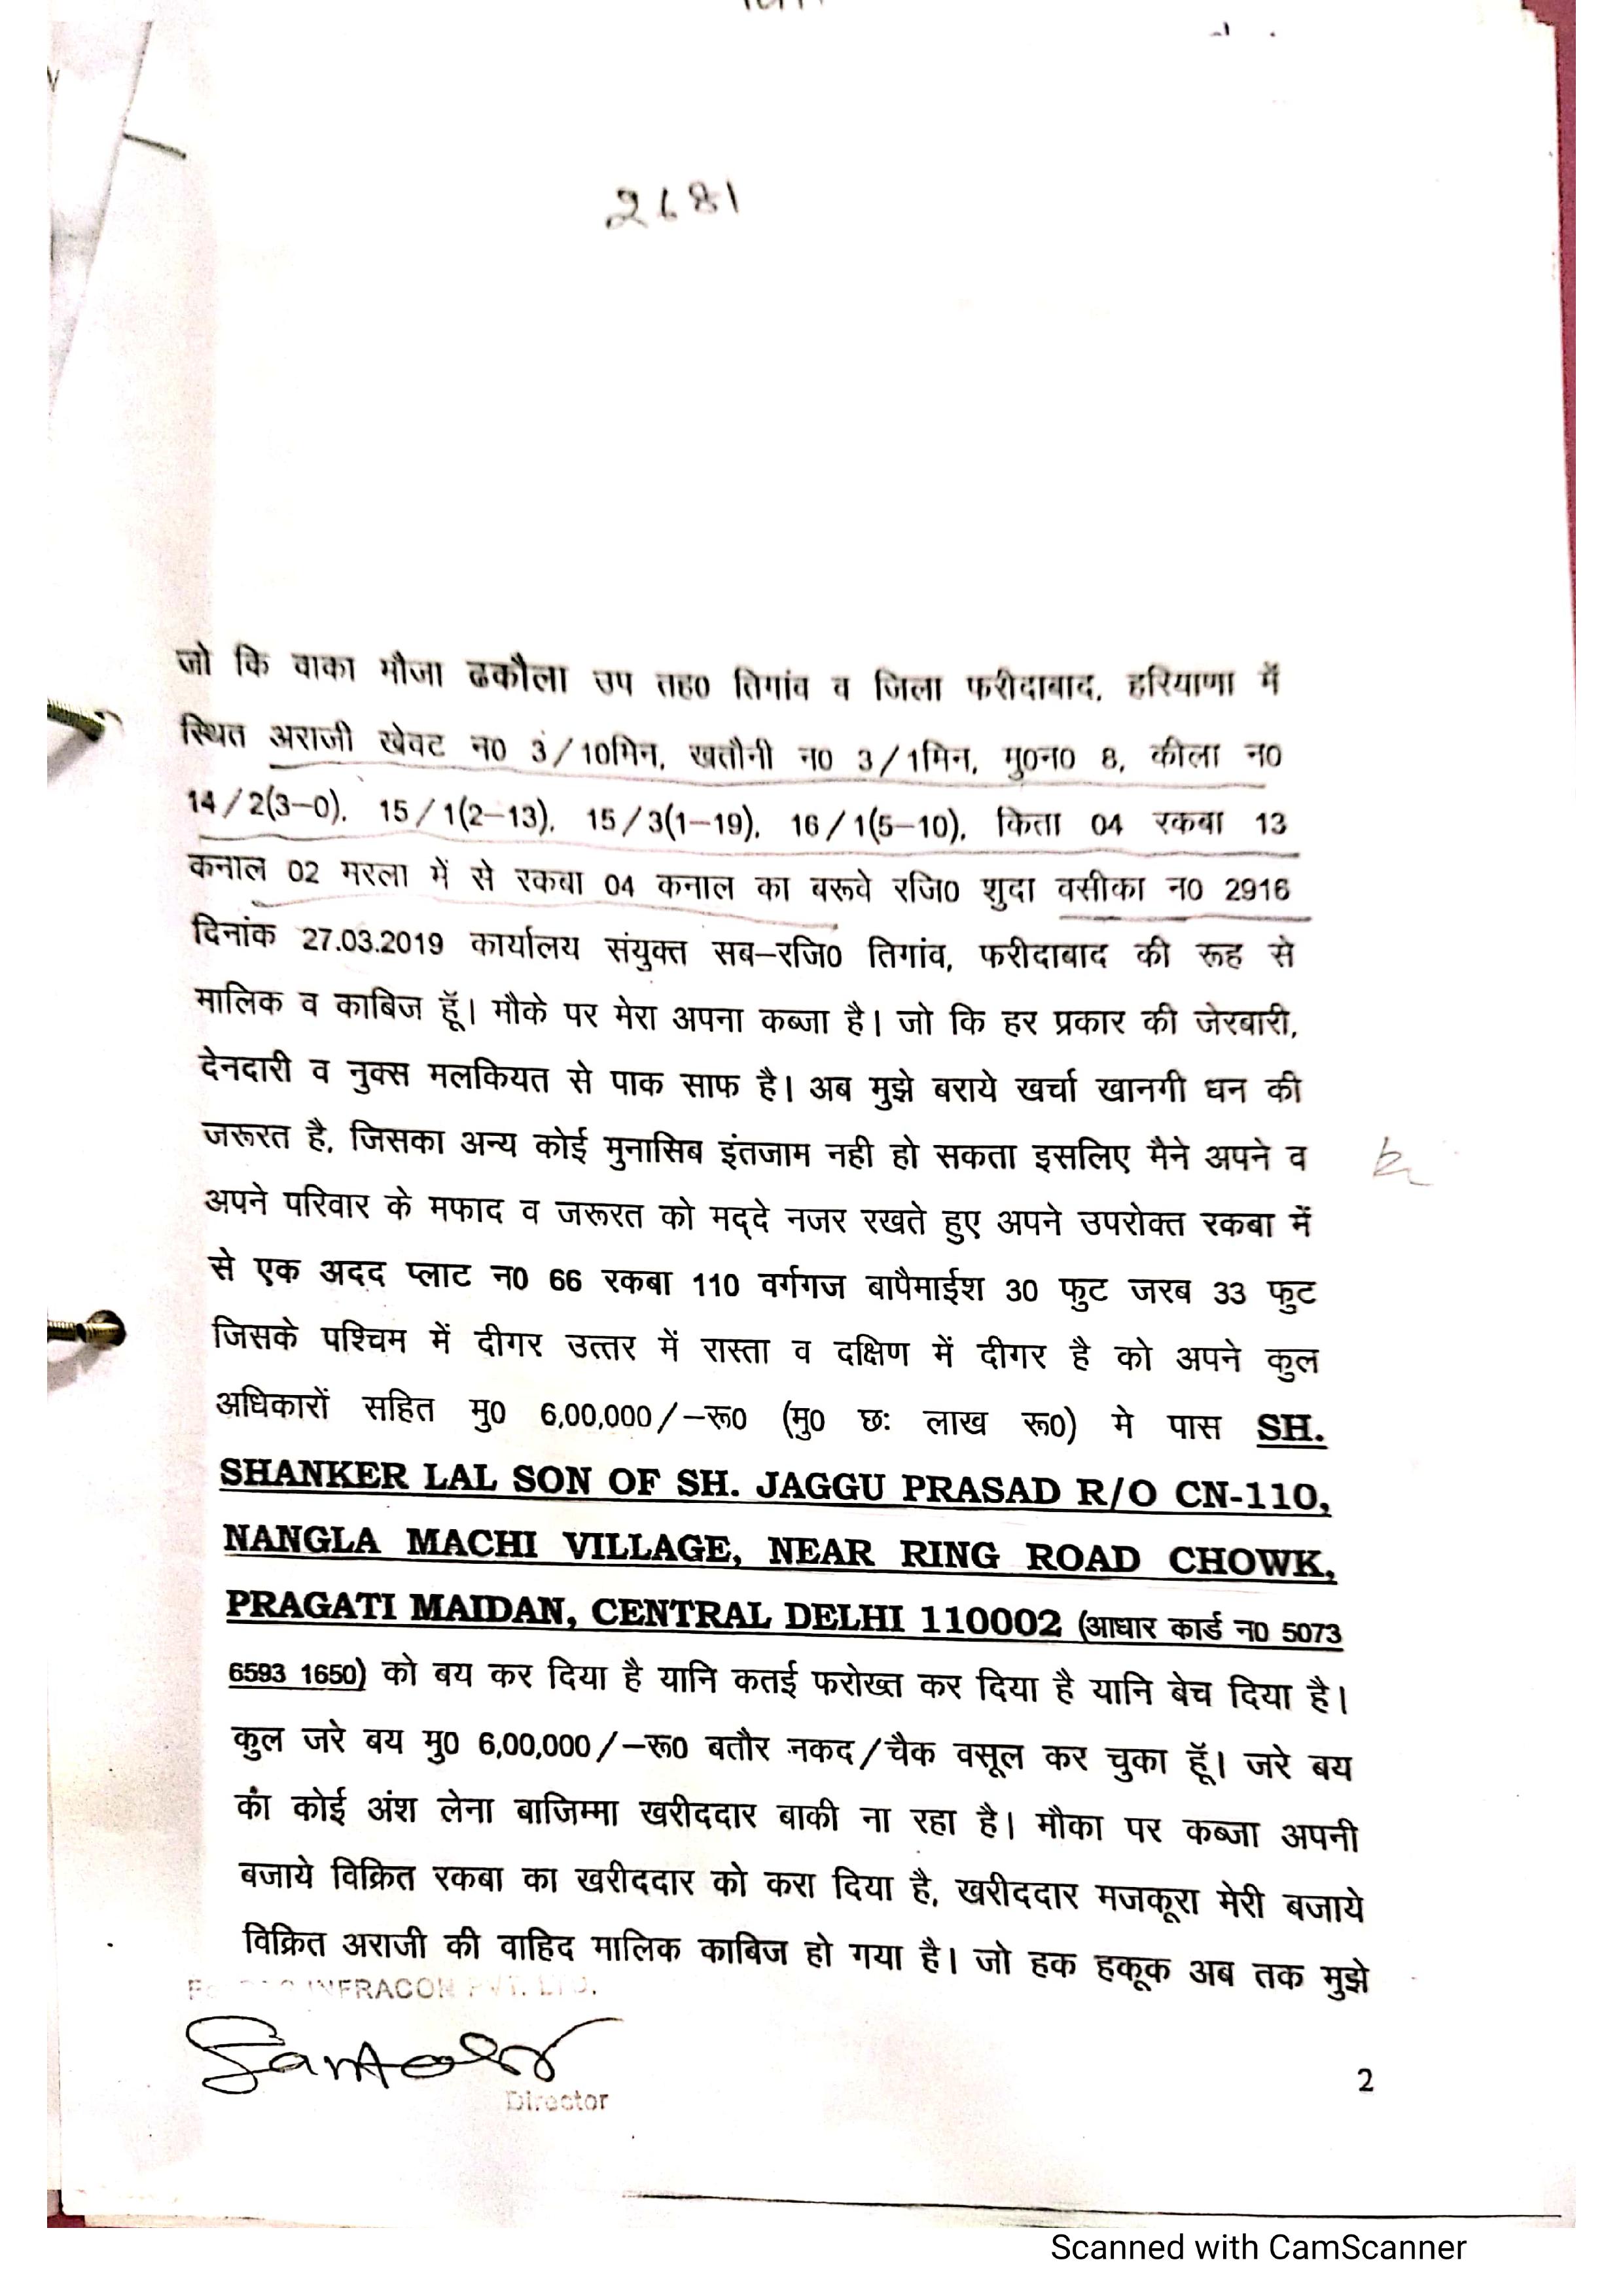 2681
जो कि वाका मौजा ढकौला उप तह0 तिगांव व जिला फरीदाबाद, हरियाणा में
स्थित अराजी खेवट न0 3/10मिन, खतौनी न0 3/1मिन, मु0न0 8, कीला न0
14/2(3–0), 15/1(2–13), 15/3(1–19), 16/1(5–10), किता 04 रकबा 13
कनाल 02 मरला में से रकबा 04 कनाल का बरूवे रजि0 शुदा वसीका न0 2916
दिनांक 27.03.2019 कार्यालय संयुक्त सब–रजि0 तिगांव, फरीदाबाद की रूह से
मालिक व काबिज हूॅ। मौके पर मेरा अपना कब्जा है। जो कि हर प्रकार की जेरबारी,
देनदारी व नुक्स मलकियत से पाक साफ है। अब मुझे बराये खर्चा खानगी धन की
जरूरत है, जिसका अन्य कोई मुनासिब इंतजाम नही हो सकता इसलिए मैने अपने व
अपने परिवार के मफाद व जरूरत को मद्दे नजर रखते हुए अपने उपरोक्त रकबा में
से एक अदद प्लाट न0 66 रकबा 110 वर्गगज बापैमाईश 30 फुट जरब 33 फुट
जिसके पश्चिम में दीगर उत्तर में रास्ता व दक्षिण में दीगर है को अपने कुल
अधिकारों सहित मु0 6,00,000/–रू0 (मु0 छः लाख रू0) मे पास SH.
SHANKER LAL SON OF SH. JAGGU PRASAD R/O CN-110,
NANGLA MACHI VILLAGE, NEAR RING ROAD CHOWK,
PRAGATI MAIDAN, CENTRAL DELHI 110002 (आधार कार्ड न0 5073
6593 1650) को बय कर दिया है यानि कतई फरोख्त कर दिया है यानि बेच दिया है।
कुल जरे बय मु0 6,00,000/–रू0 बतौर नकद/चैक वसूल कर चुका हूॅ। जरे बय
का कोई अंश लेना बाजिम्मा खरीददार बाकी ना रहा है। मौका पर कब्जा अपनी
बजाये विक्रित रकबा का खरीददार को करा दिया है, खरीददार मजकूरा मेरी बजाये
विक्रित अराजी की वाहिद मालिक काबिज हो गया है। जो हक हकूक अब तक मुझे
INFRACON PVT. LTD.
Director
2
Scanned with CamScanner